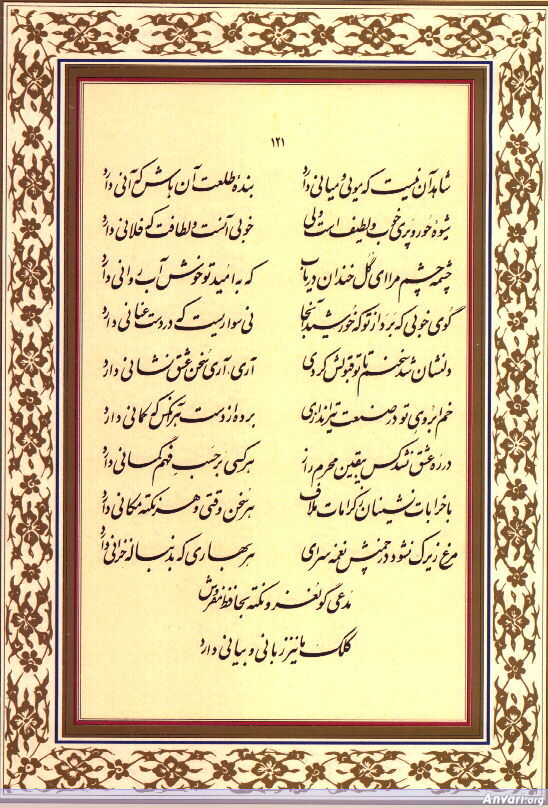 ۱۲۱
شاهد آن نیست که مویی و میانی دارد بندهٔ طلعت آن باش که آنی دارد
شیوهٔ حور و پری خوب و لطیف است ولی خوبی آنست و لطافت که فلانی دارد
چشمه چشم مرا ای گل خندان دریاب که به امید تو خوش آب روانی دارد
گوی خوبی که برد از تو که خورشید آنجا نی سواریست که در دست عنانی دارد
دلنشان شد سخنم تا تو قبولش کردی آری، آری سخن عشق نشانی دارد
خم ابروی تو در صنعت تیراندازی برده از دست هر آنکس که کمانی دارد
در ره عشق نشد کس بیقین محرم راز هر کسی بر حسب فهم گمانی دارد
با خرابات نشینان ز کرامات ملاف هر سخن وقتی و هر نکته مکانی دارد
مرغ زیرک نشود در چمنش نغمه سرای هر بهاری که بدنباله خزانی دارد
مدعی گو لغز و نکته بحافظ مفروش
کلک ما نیز زبانی و بیانی دارد
Anvari.org